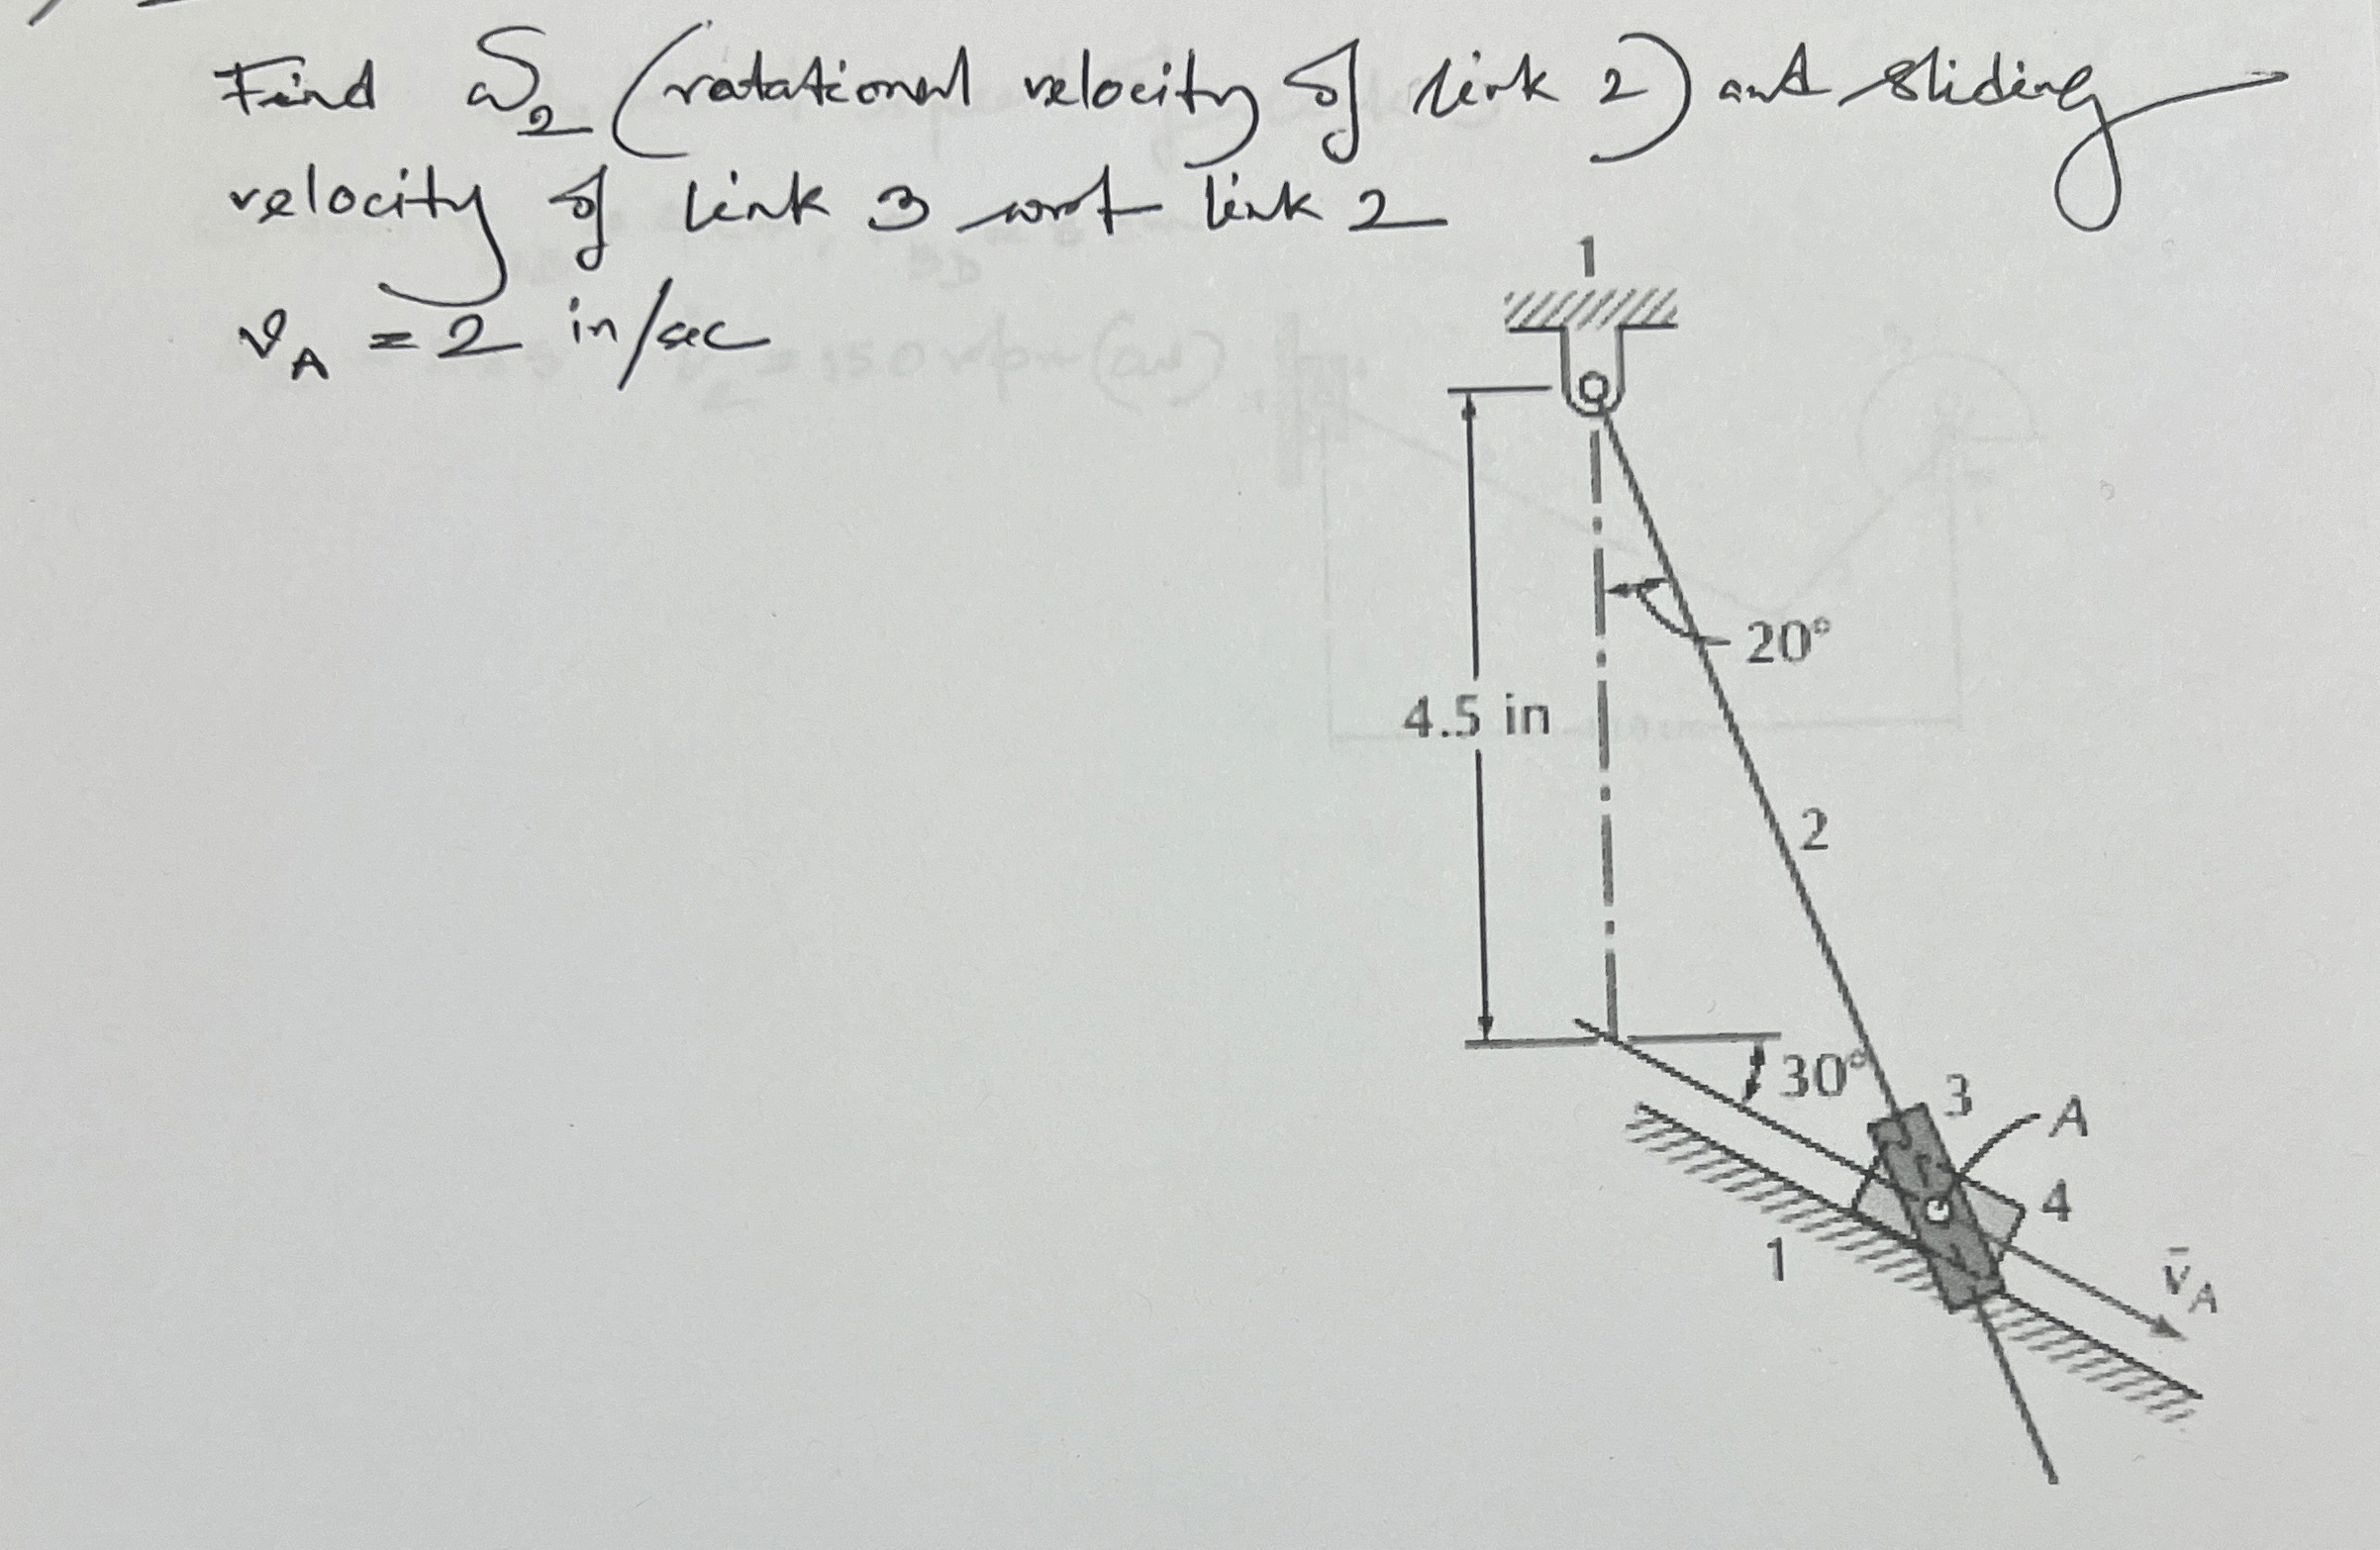 Find ω̄₂ (rotational velocity of link 2) and sliding
velocity of link 3 wrt link 2
v_A = 2 in/sec
1
20°
4.5 in
2
30°
3
A
4
1
v̄_A